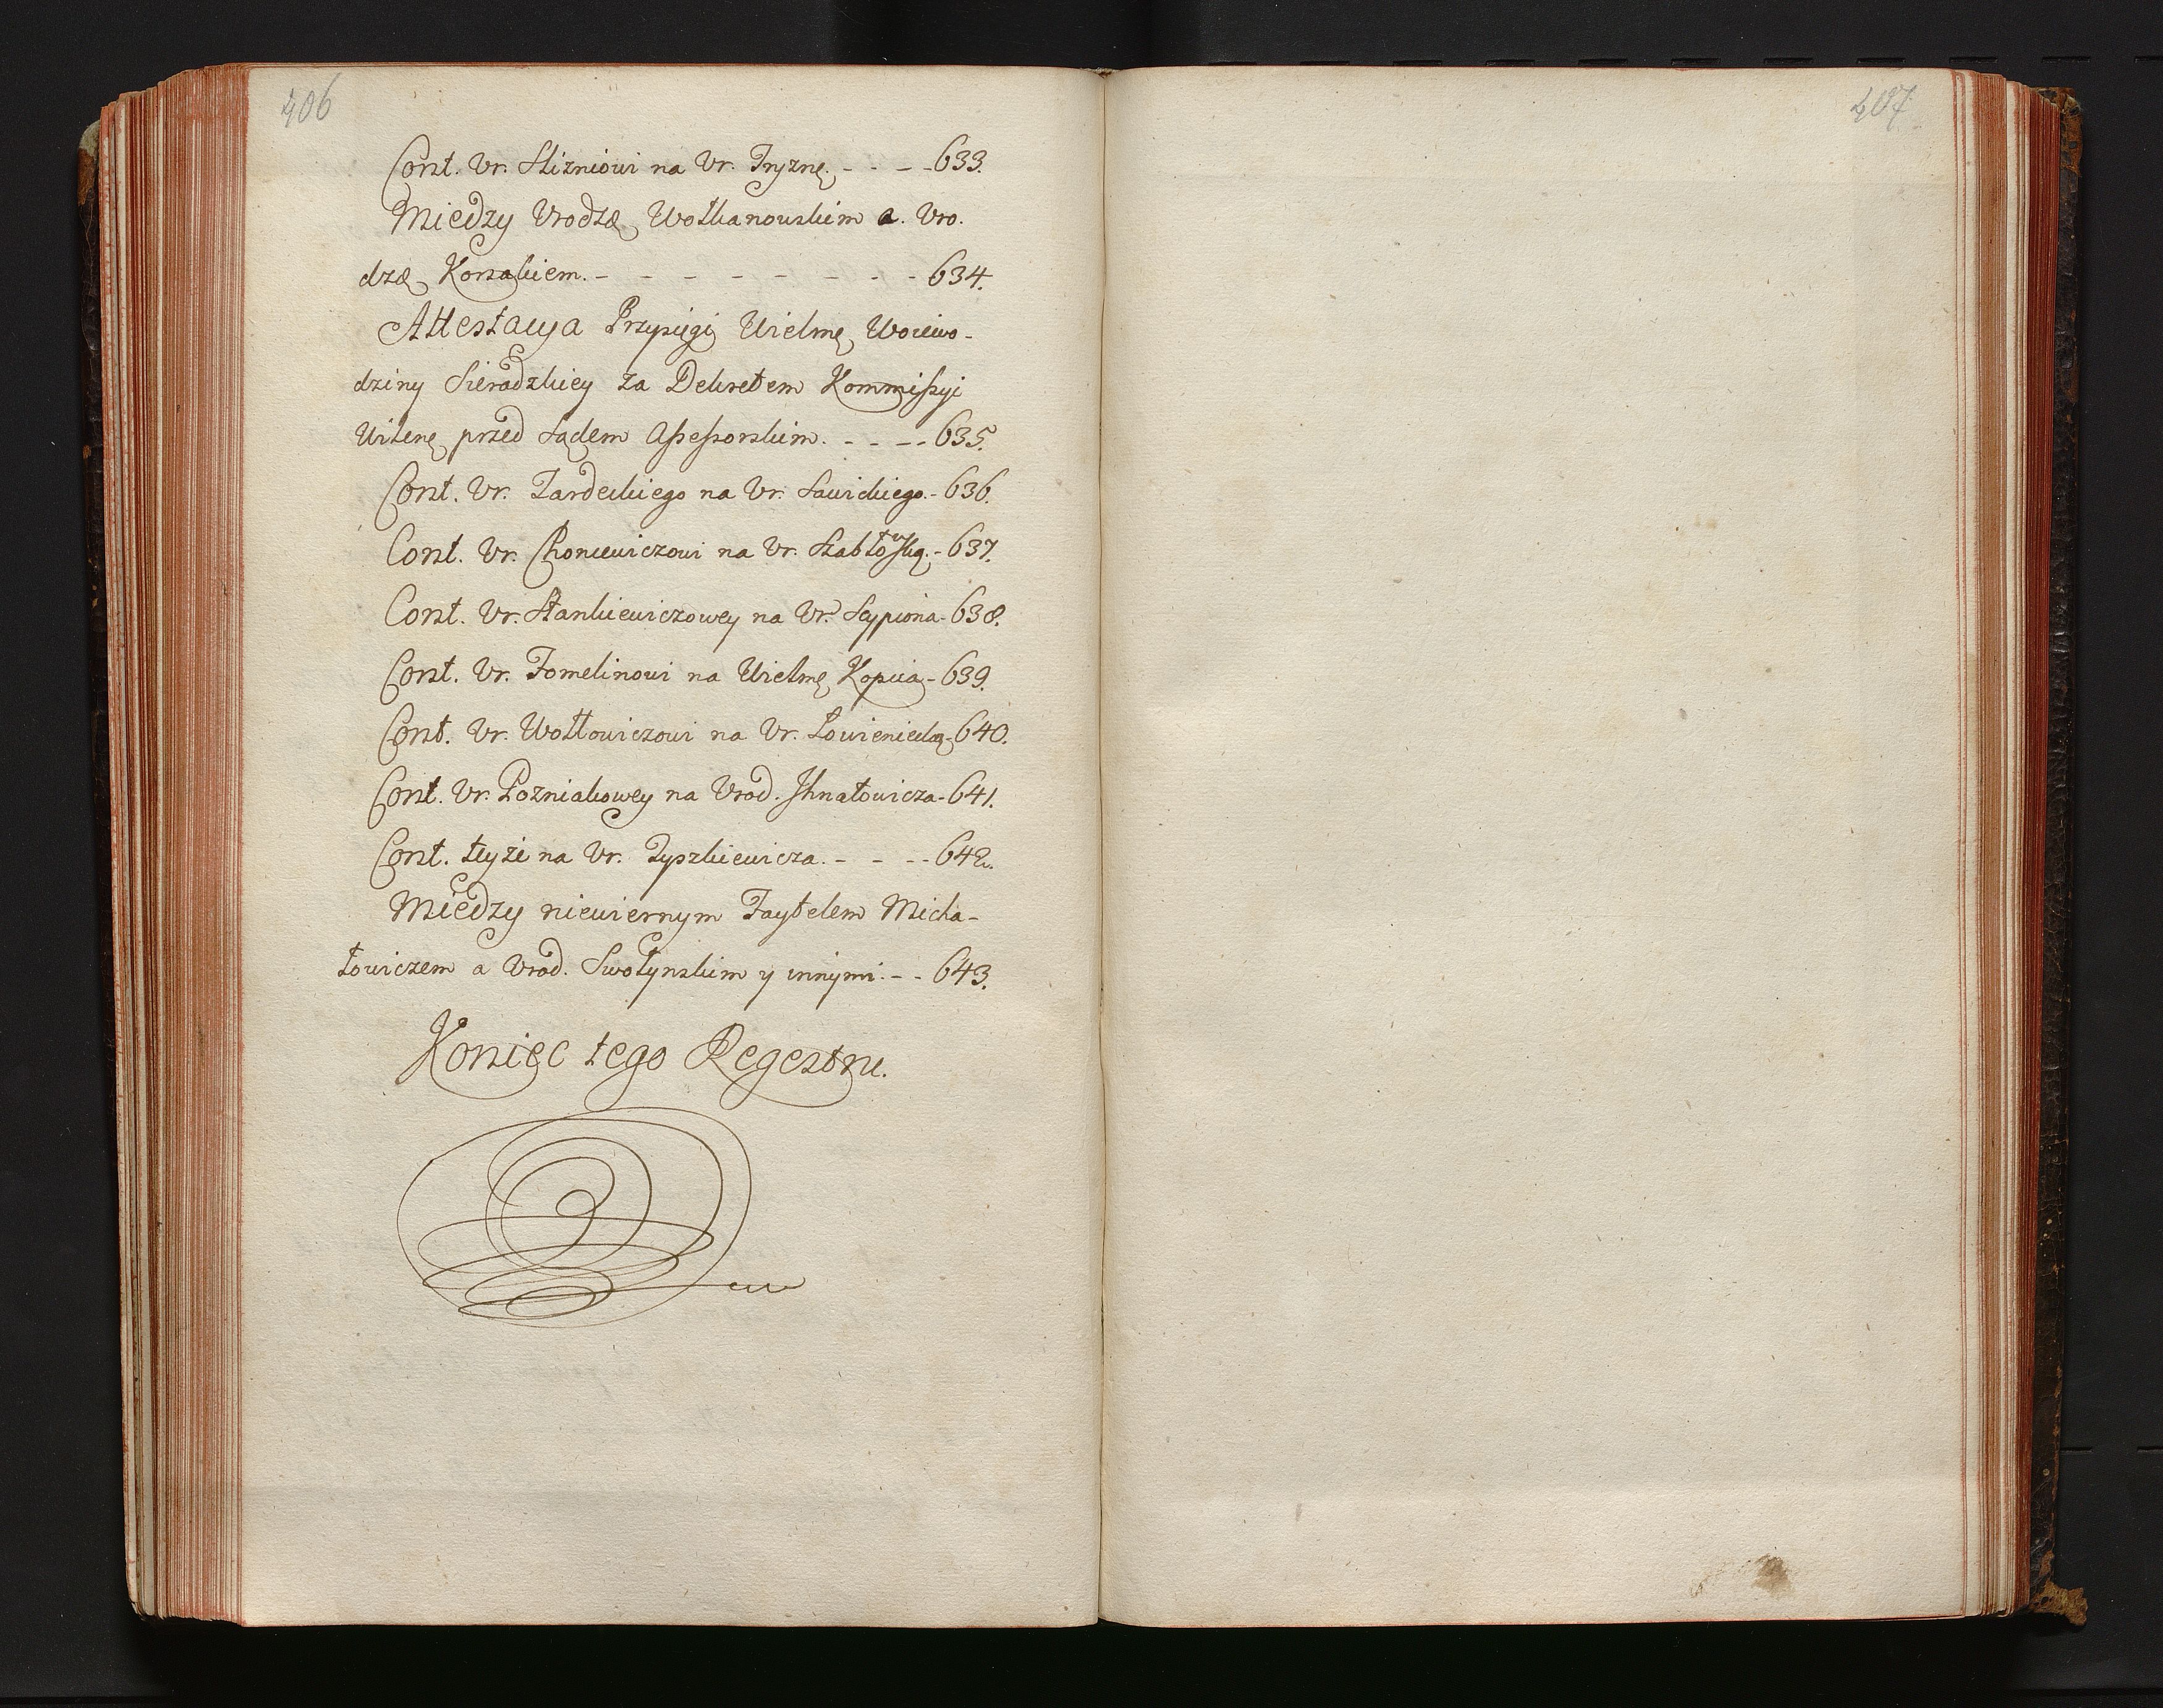 406
Const. Vr. Slizniowi na Vr. Tryznę. - - - - 633.
Miedzy Vrodzę Wołkanowskim a. Vro.
dzę Korsakiem. - - - - - - - - 634.
Attestacya Przysięgi Wielmę Woiewo-
dziny Sieradzkiey za Dekretem Kommissyi
Wilenę przed Sądem Assessorskim. - - - - 635.
Const. Vr. Zardeckiego na Vr. Sawickiego. - 636.
Const. Vr. Choncewiczowi na Vr. Szabłowską. - 637.
Const. Vr. Stankiewiczowey na Vr. Scypiona - 638.
Const. Vr. Fomelinowi na Wielmę Kopcia - 639.
Const. Vr. Wołłowiczowi na Vr. Łowienieckę - 640.
Const. Vr. Pozniakowey na Vrod. Ihnatowicza - 641.
Const. teyże na Vr. Tyszkiewicza. - - - - 642.
Miedzy niewiernym Faytelem Micha-
łowiczem a Vrod. Swołynskim y innymi. - - 643.
Koniec tego Regestru.
407